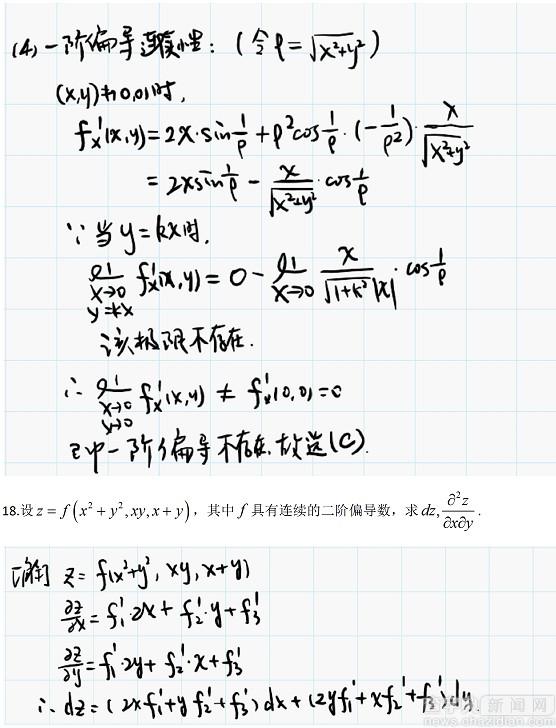 (4) 一阶偏导连续性: (令ρ=√(x²+y²))
(x,y)≠(0,0)时,
f'ₓ(x,y)=2x·sin(1/ρ)+ρ²cos(1/ρ)·(-1/ρ²)·x/√(x²+y²)
=2x sin(1/ρ) - x/√(x²+y²)·cos(1/ρ)
∵当y=kx时,
lim(x→0, y=kx) f'ₓ(x,y)=0-lim(x→0) x/(√(1+k²)|x|)·cos(1/ρ)
该极限不存在.
∴ lim(x→0, y→0) f'ₓ(x,y) ≠ f'ₓ(0,0)=0
即一阶偏导不存在,故选(C).
18.设 z = f(x² + y², xy, x + y)，其中 f 具有连续的二阶偏导数，求 dz, ∂²z/∂x∂y .
[解] z=f(x²+y², xy, x+y)
∂z/∂x=f₁'·2x+f₂'·y+f₃'
∂z/∂y=f₁'·2y+f₂'·x+f₃'
∴dz=(2xf₁'+yf₂'+f₃')dx+(2yf₁'+xf₂'+f₃')dy.
新闻网
news.ghazidian.com